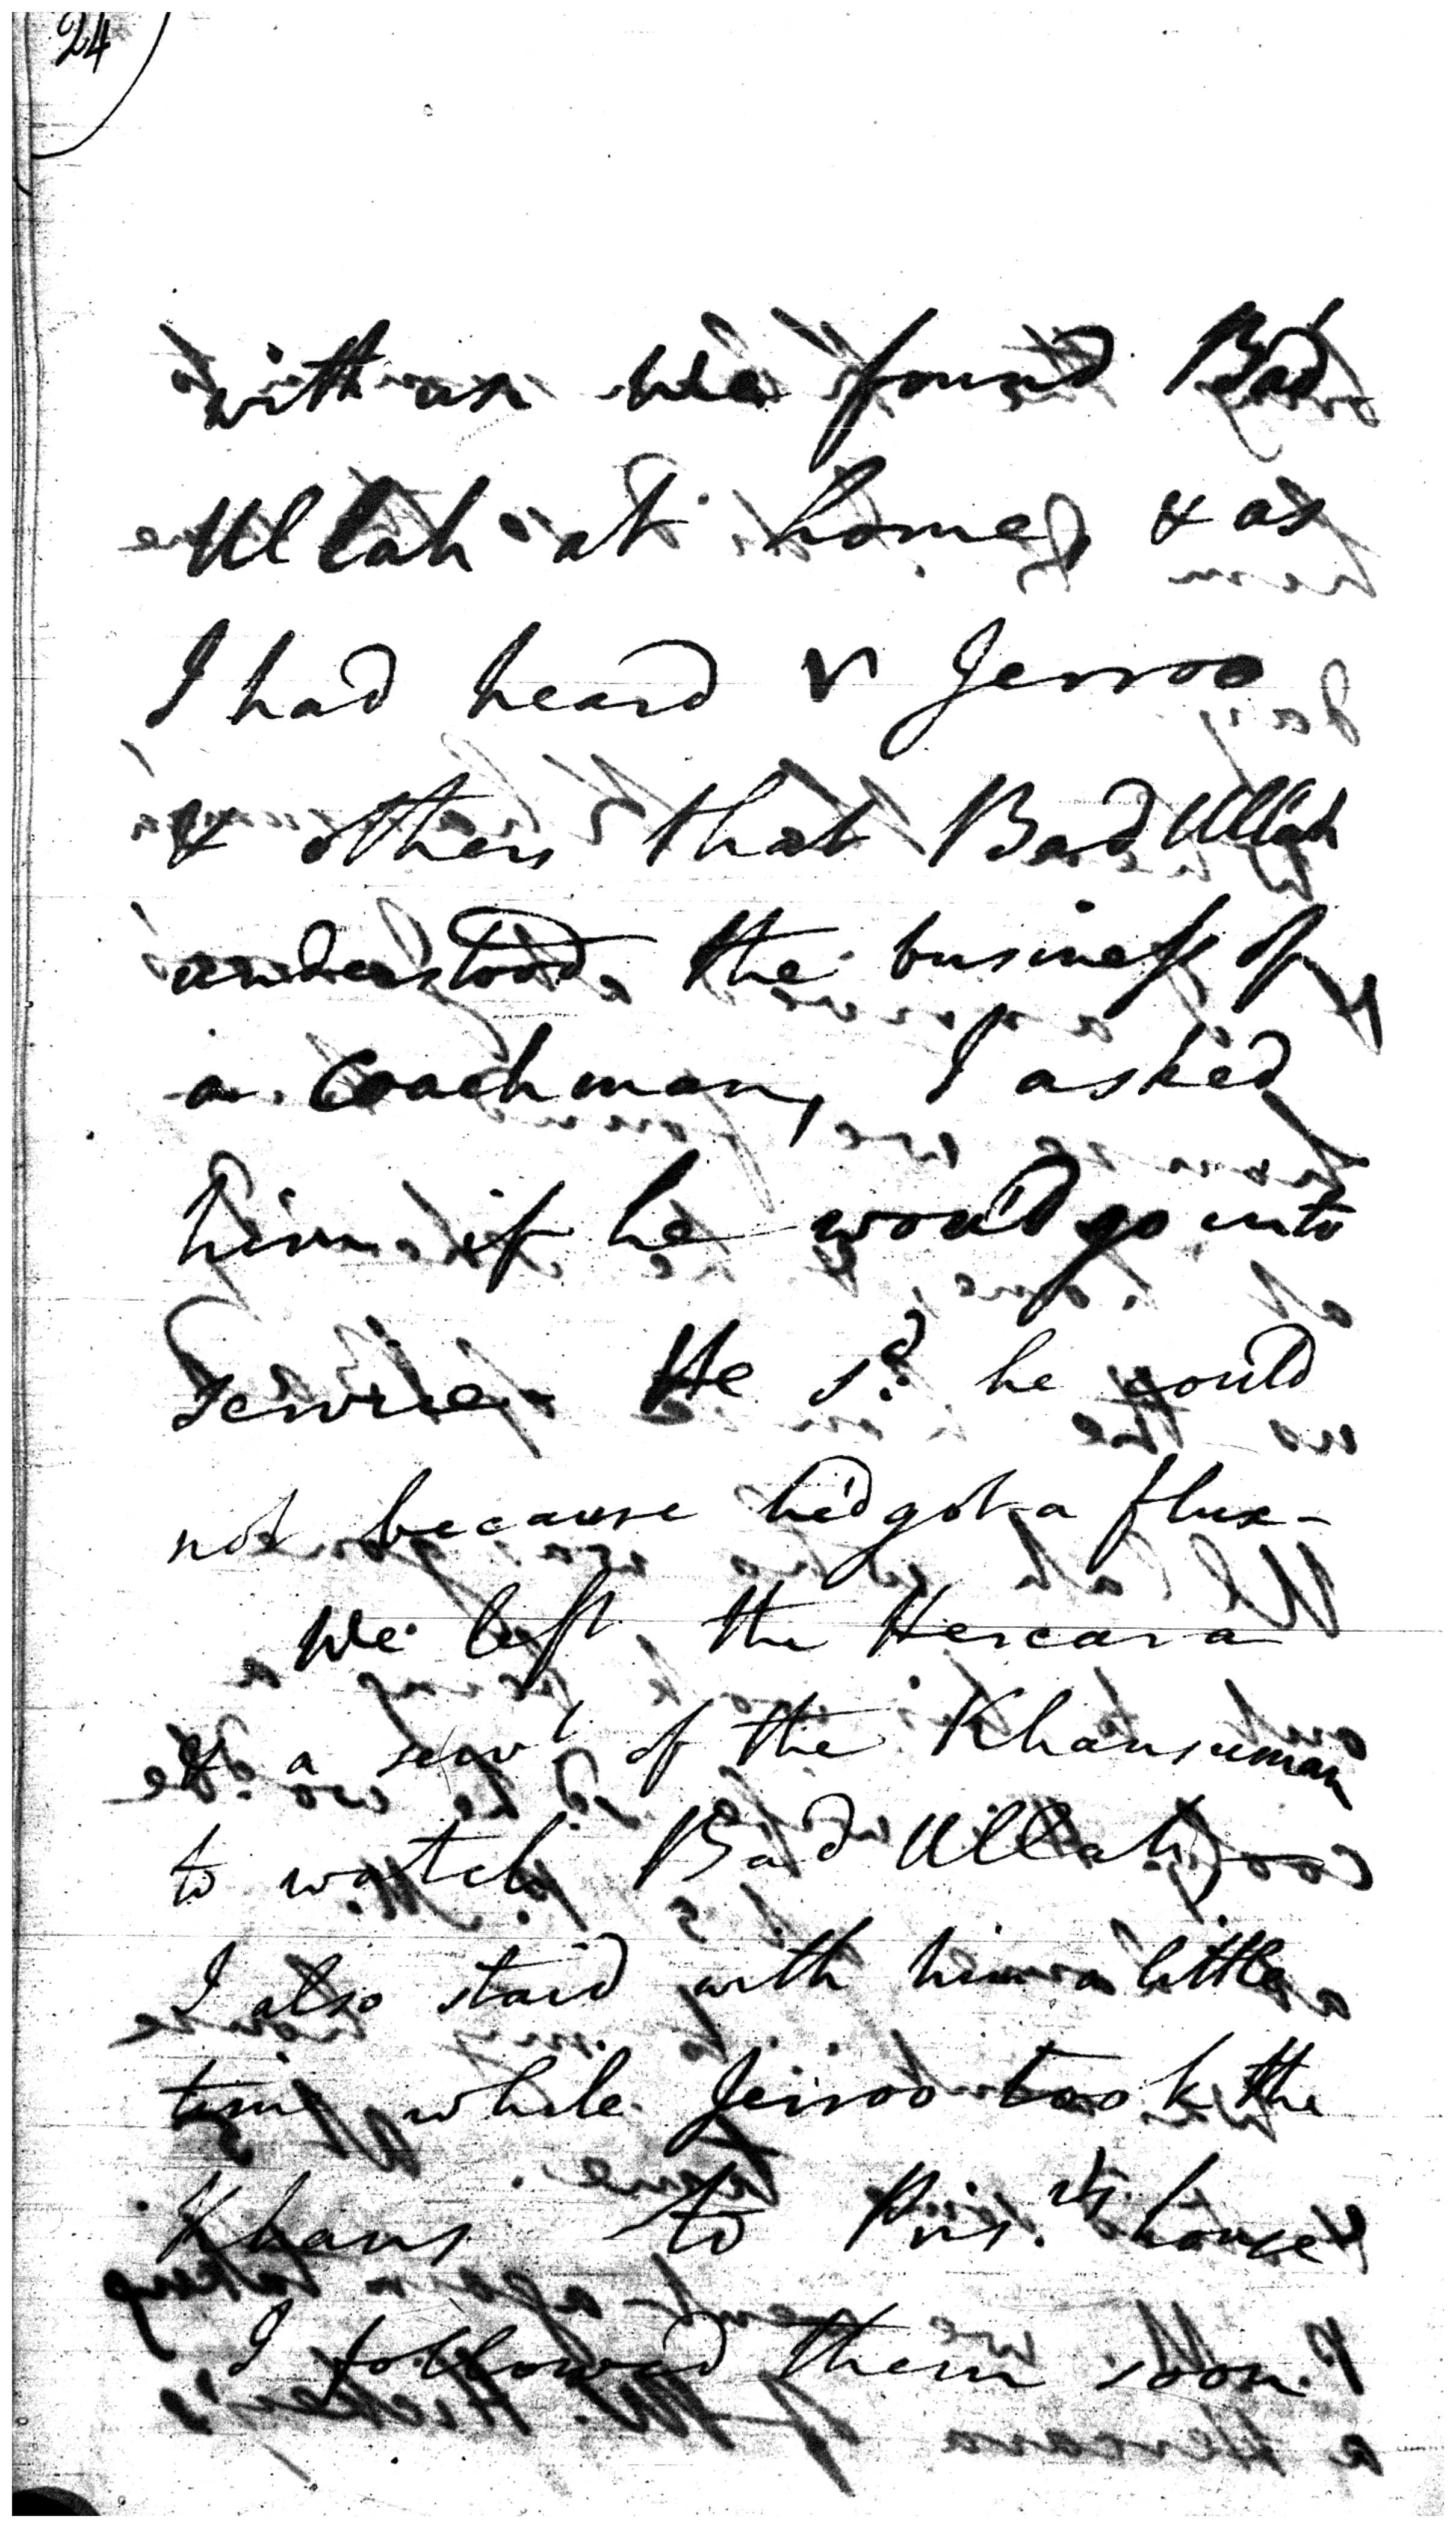 24
with us. We found Bad
Ullah at home, & as
I had heard v Jerroo
& others that Bad Ullah
understood the business of
a Coachman, I asked
him if he wou'd go into
Service. He sd. he could
not because he'd got a flux -
We left the Hercara
& a servt. of the Khansuman
to watch Bad Ullah
I also staid with him a little
time while Jerroo took the
Khans to Pris.rs house
I followed them soon.